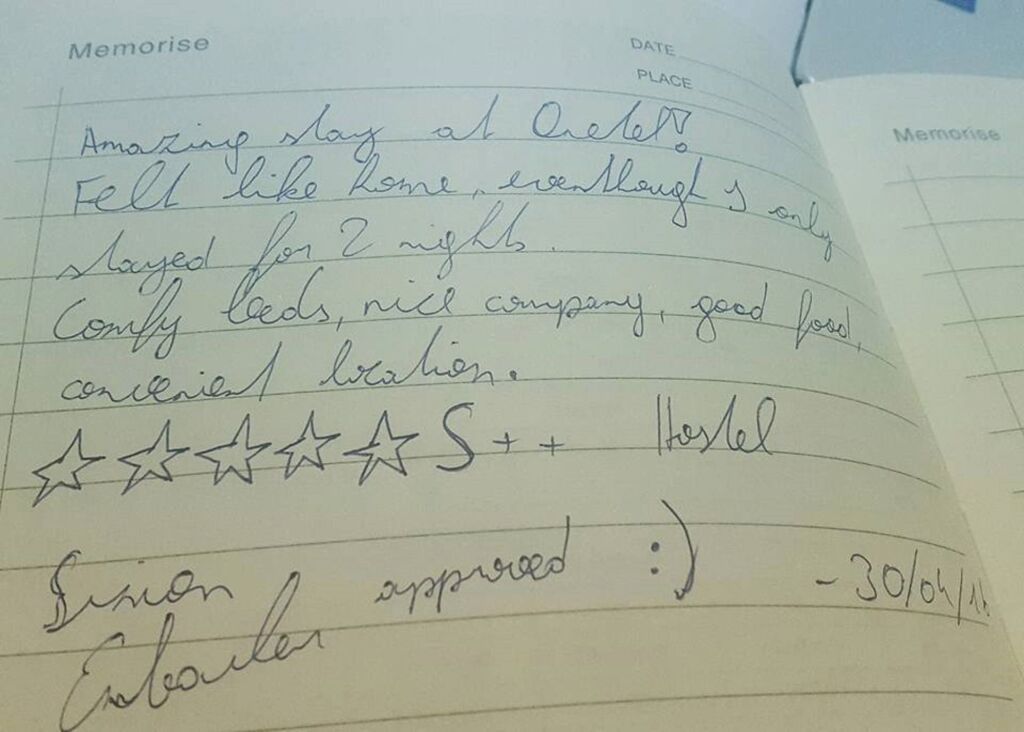 Memorise
DATE
PLACE
Amazing stay at Onetel!
Felt like home, eventhough I only
stayed for 2 nights.
Comfy beds, nice company, good food,
convenient location.
S++ Hostel
approved :)
- 30/04/
Memorise